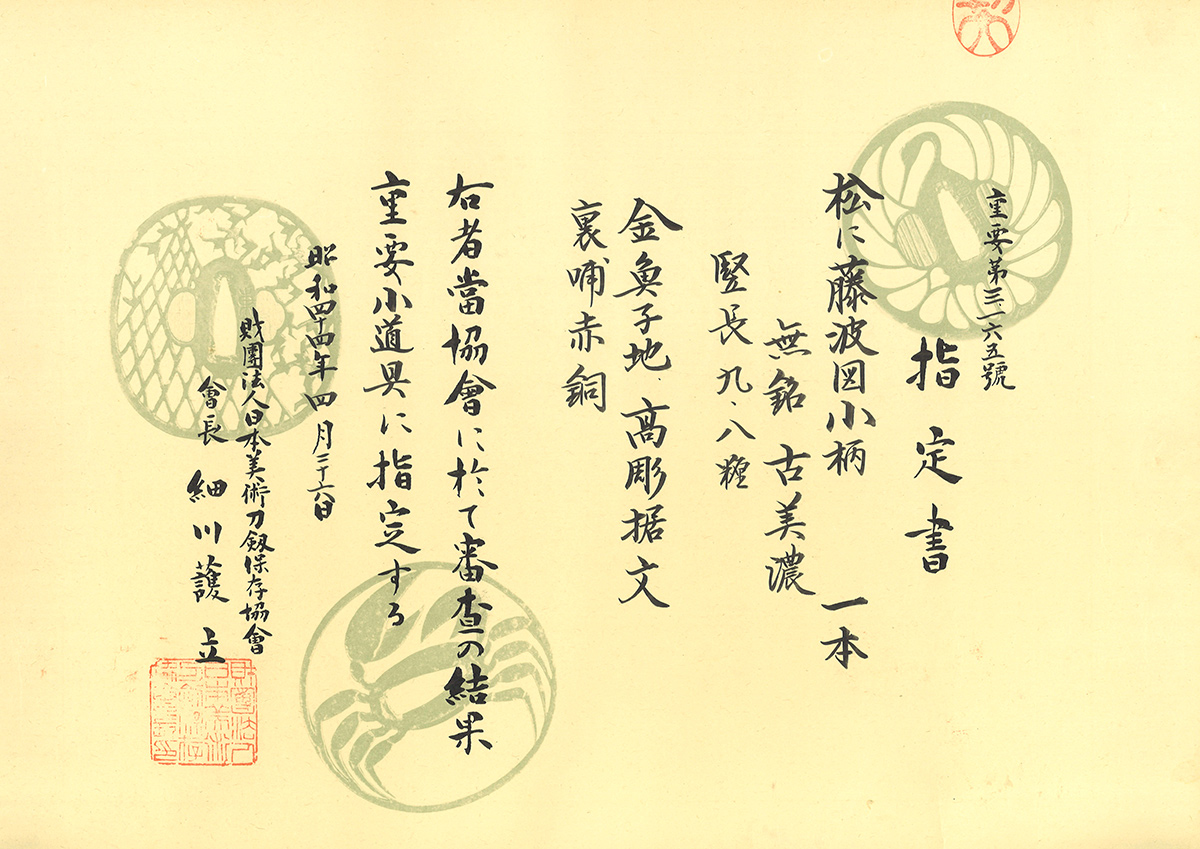 重要第三一六五號
指定書
松に藤波図小柄 一本
無銘 古美濃
竪長九・八糎
金魚子地、高彫据文
裏哺赤銅
右者當協會に於て審査の結果
重要小道具に指定する
昭和四十四年四月二十六日
財團法人日本美術刀劔保存協會
會長 細川護立